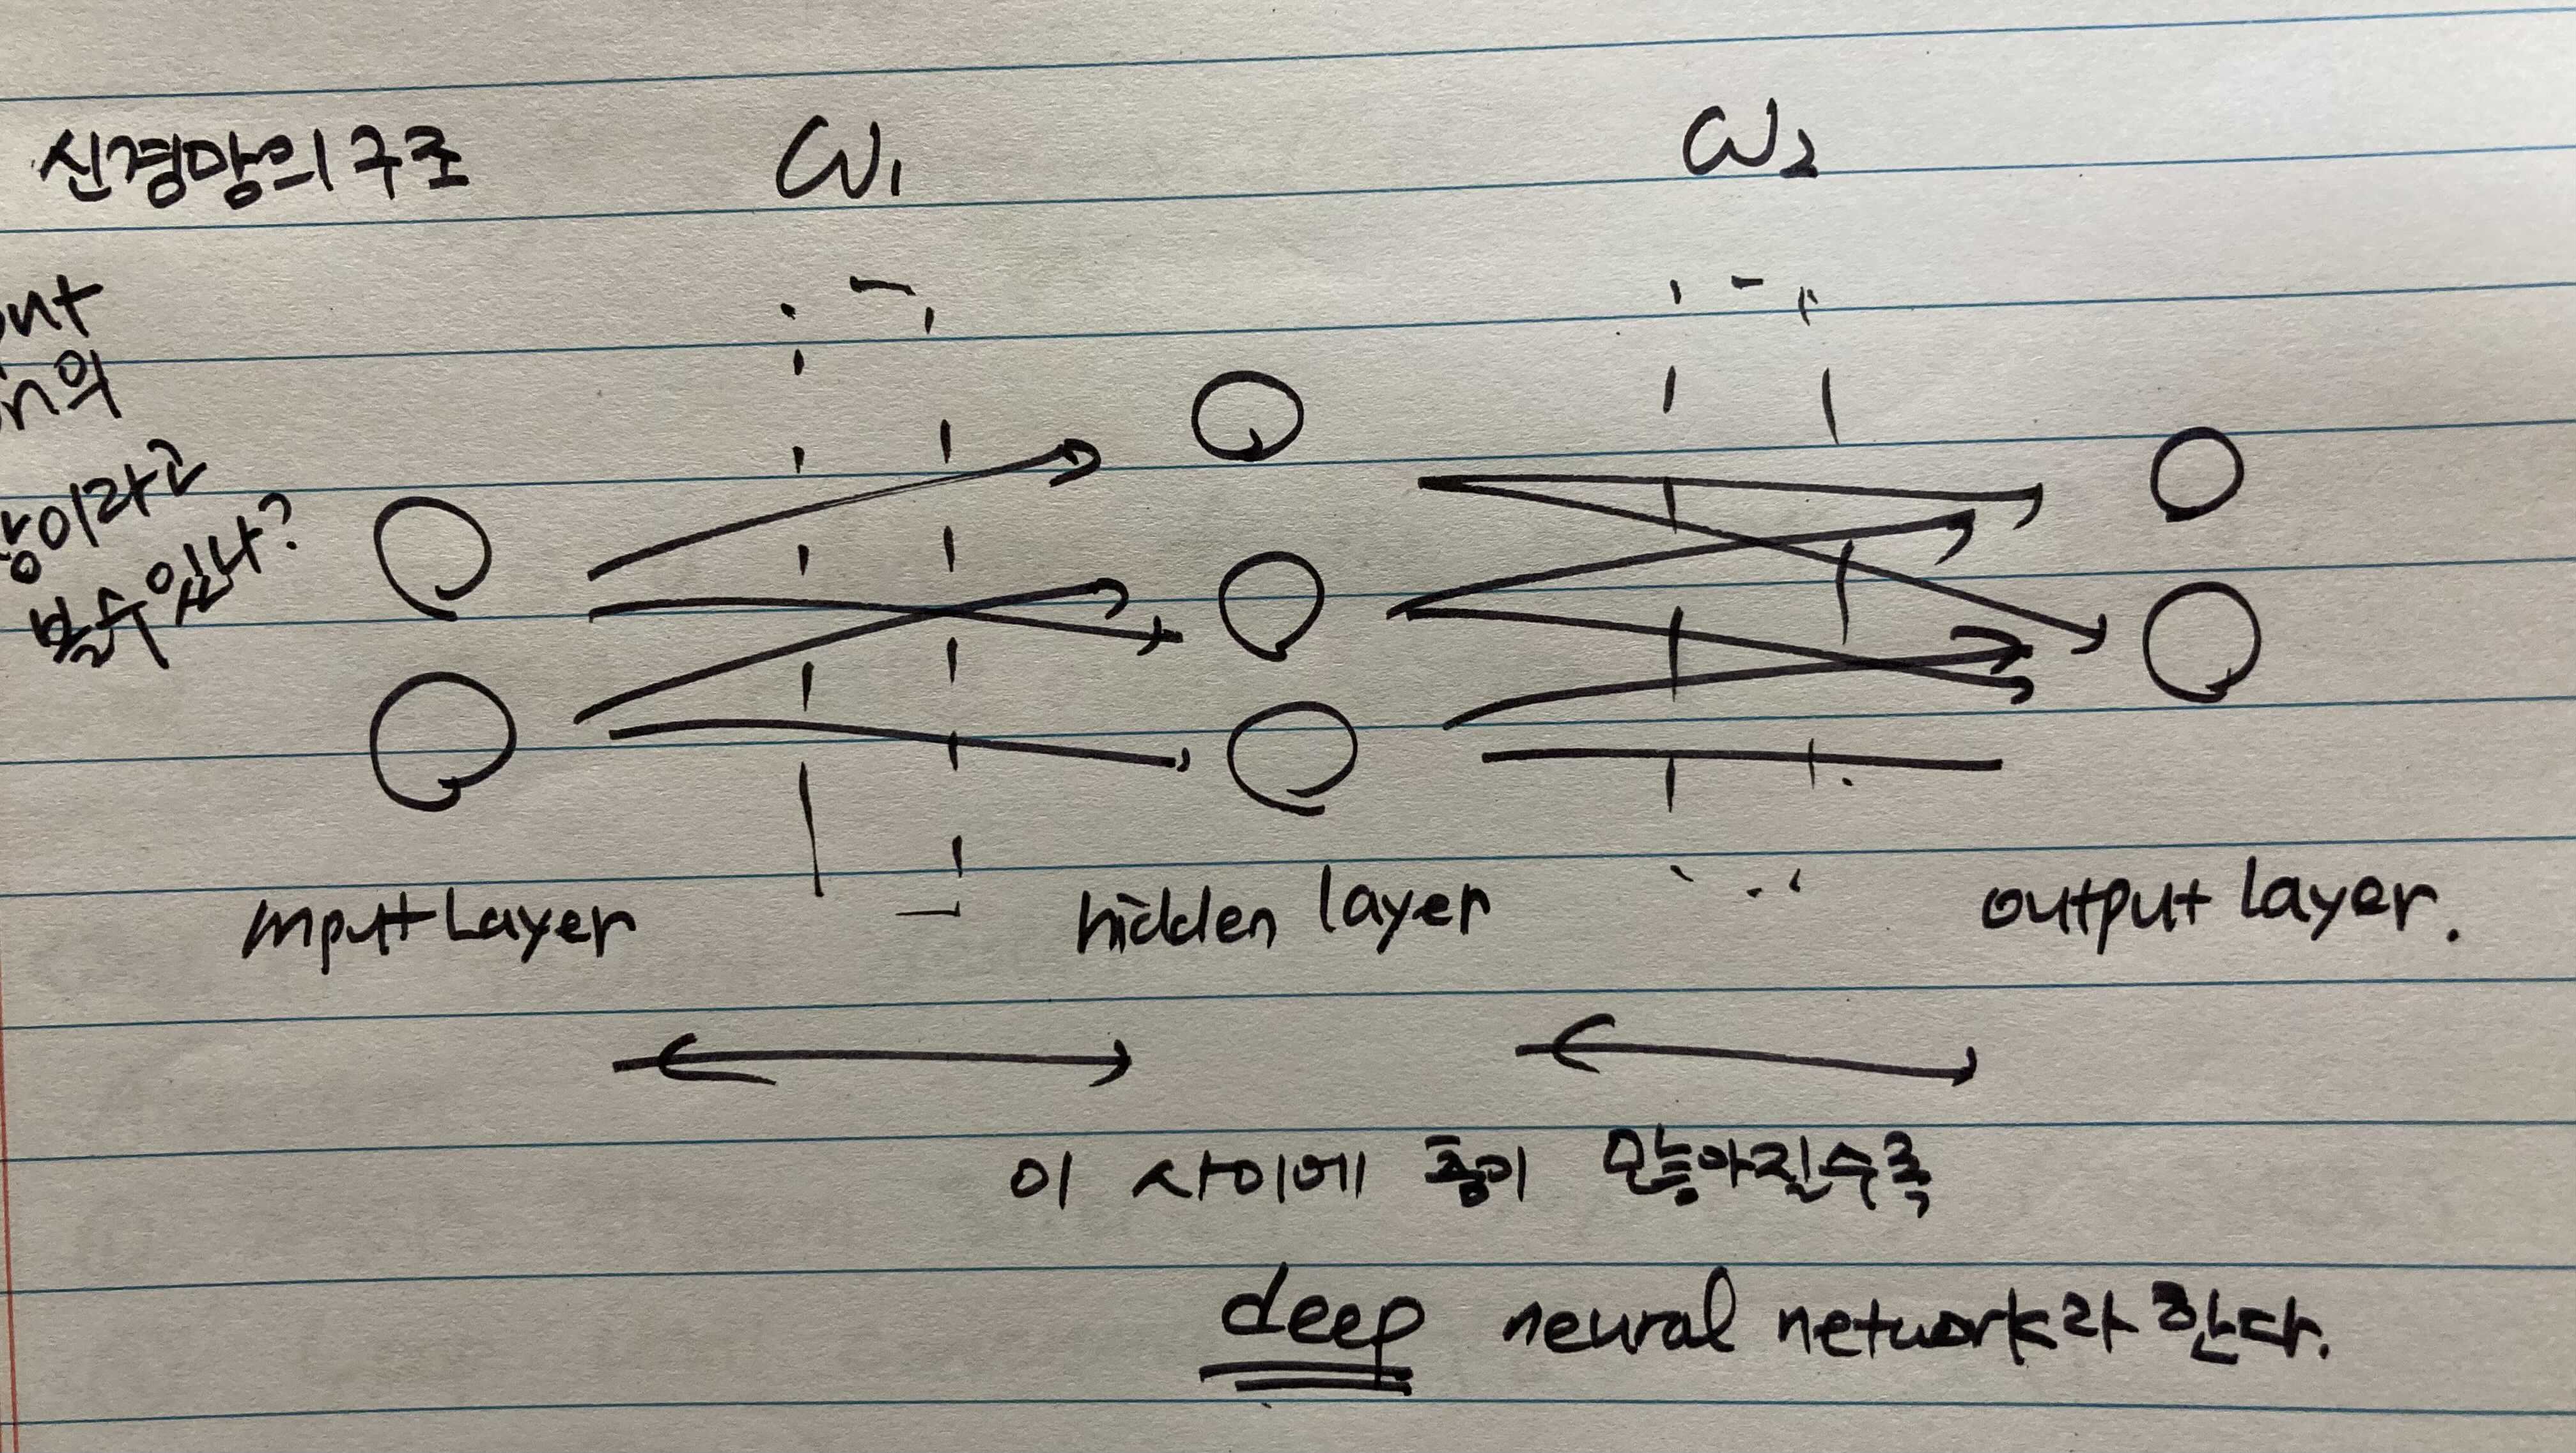 신경망의 구조
ω₁
ω₂
n의
이라고
볼 수 있나?
input Layer
hidden layer
output layer.
이 사이에 층이 많아질수록
deep neural network라 한다.